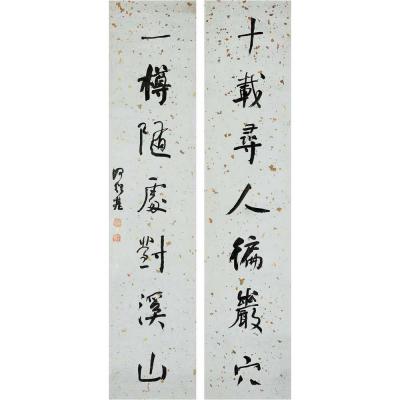 十載尋人徧巖穴
一樽隨處對溪山
何紹基